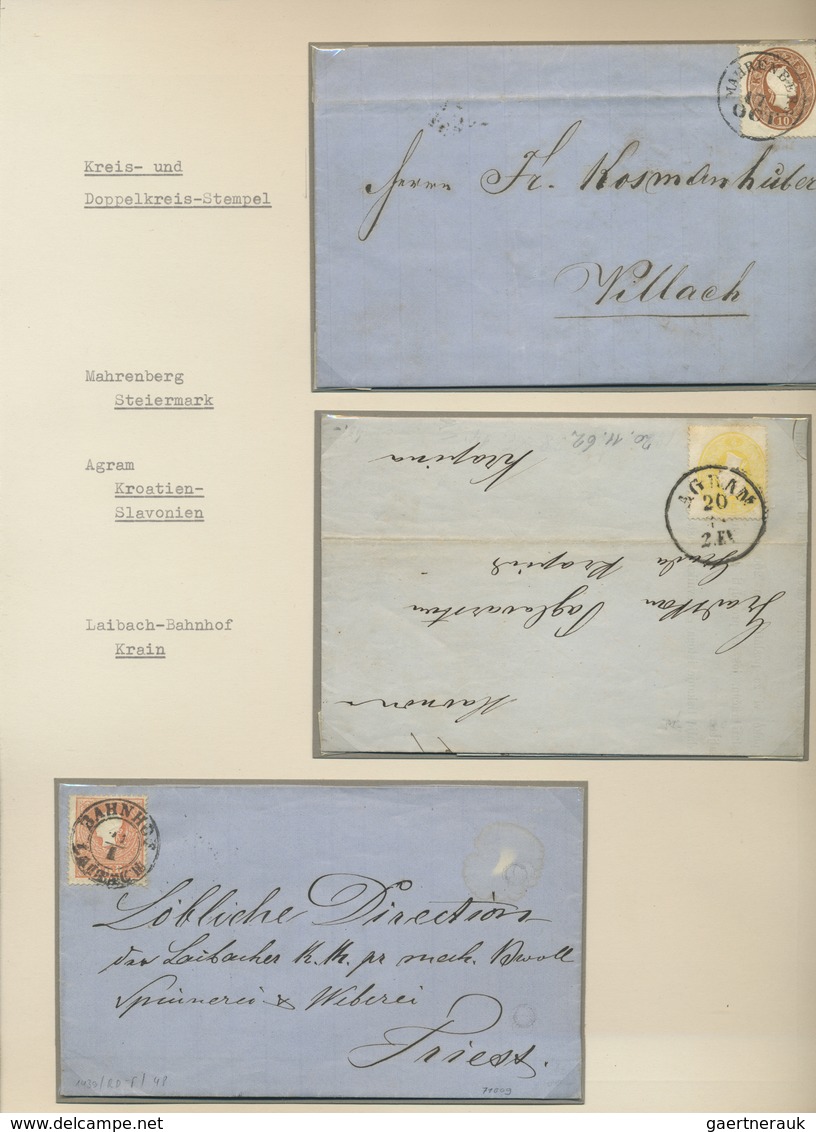 Kreis- und
Doppelkreis-Stempel
MAHRENBE
17
OCT
10
Herrn Fr. Kosmanhuber
Villach
Mahrenberg
Steiermark
Agram
Kroatien-
Slavonien
Laibach-Bahnhof
Krain
20.11.62.
Krapina
AGRAM
20
2.EX
BAHNHOF
LAIBACH
Löbliche Direction
der Laibacher K. K. pr mech. Bwoll
Spinnerei & Weberei
Triest.
71009
gaertnerauk